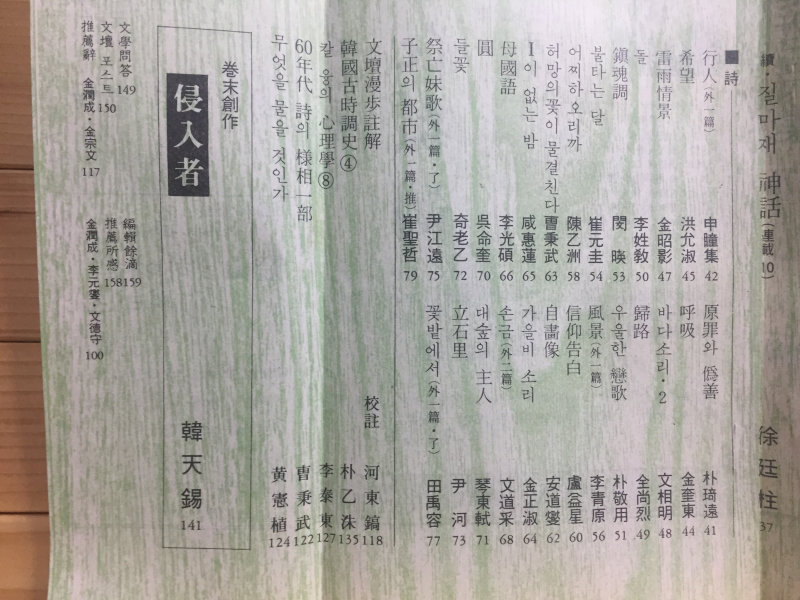 續·질마재 神話(連載10) 徐廷柱 37
■詩
行人(外一篇) 申瞳集 42 原罪와 僞善 朴琦遠 41
希望 洪允淑 45 呼吸 金奎東 44
雷雨情景 金昭影 47 바다소리·2 文相明 48
돌 李姓敎 50 歸路 全尙烈 49
鎭魂調 閔暎 53 우울한 戀歌 朴敬用 51
불타는 달 崔元圭 54 風景(外一篇) 李靑原 56
어찌하오리까 陳乙洲 58 信仰告白 盧益星 60
허망의꽃이 물결친다 曹秉武 63 自畵像 安道燮 62
I이 없는 밤 咸惠蓮 65 가을비 소리 金正淑 64
母國語 李光碩 66 손금(外二篇) 文道采 68
圓 吳命奎 70 대숲의 主人 琴東軾 71
들꽃 奇老乙 72 立石里 尹河 73
祭亡妹歌(外一篇·了) 尹江遠 75 꽃밭에서(外一篇·了) 田禹容 77
子正의 都市(外一篇·推) 崔聖哲 79
文壇漫步註解 校註 河東鎬 118
韓國古時調史④ 朴乙洙 135
칼 융의 心理學⑧ 李泰東 127
60年代 詩의 樣相一部 曹秉武 122
무엇을 물을 것인가 黃憲植 124
巻末創作
侵入者 韓天錫 141
文學問答 149 編輯餘滴 159
文壇 포스트 150 推薦所感 158
推薦辭 金潤成·金宗文 117 金潤成·李元燮·文德守 100